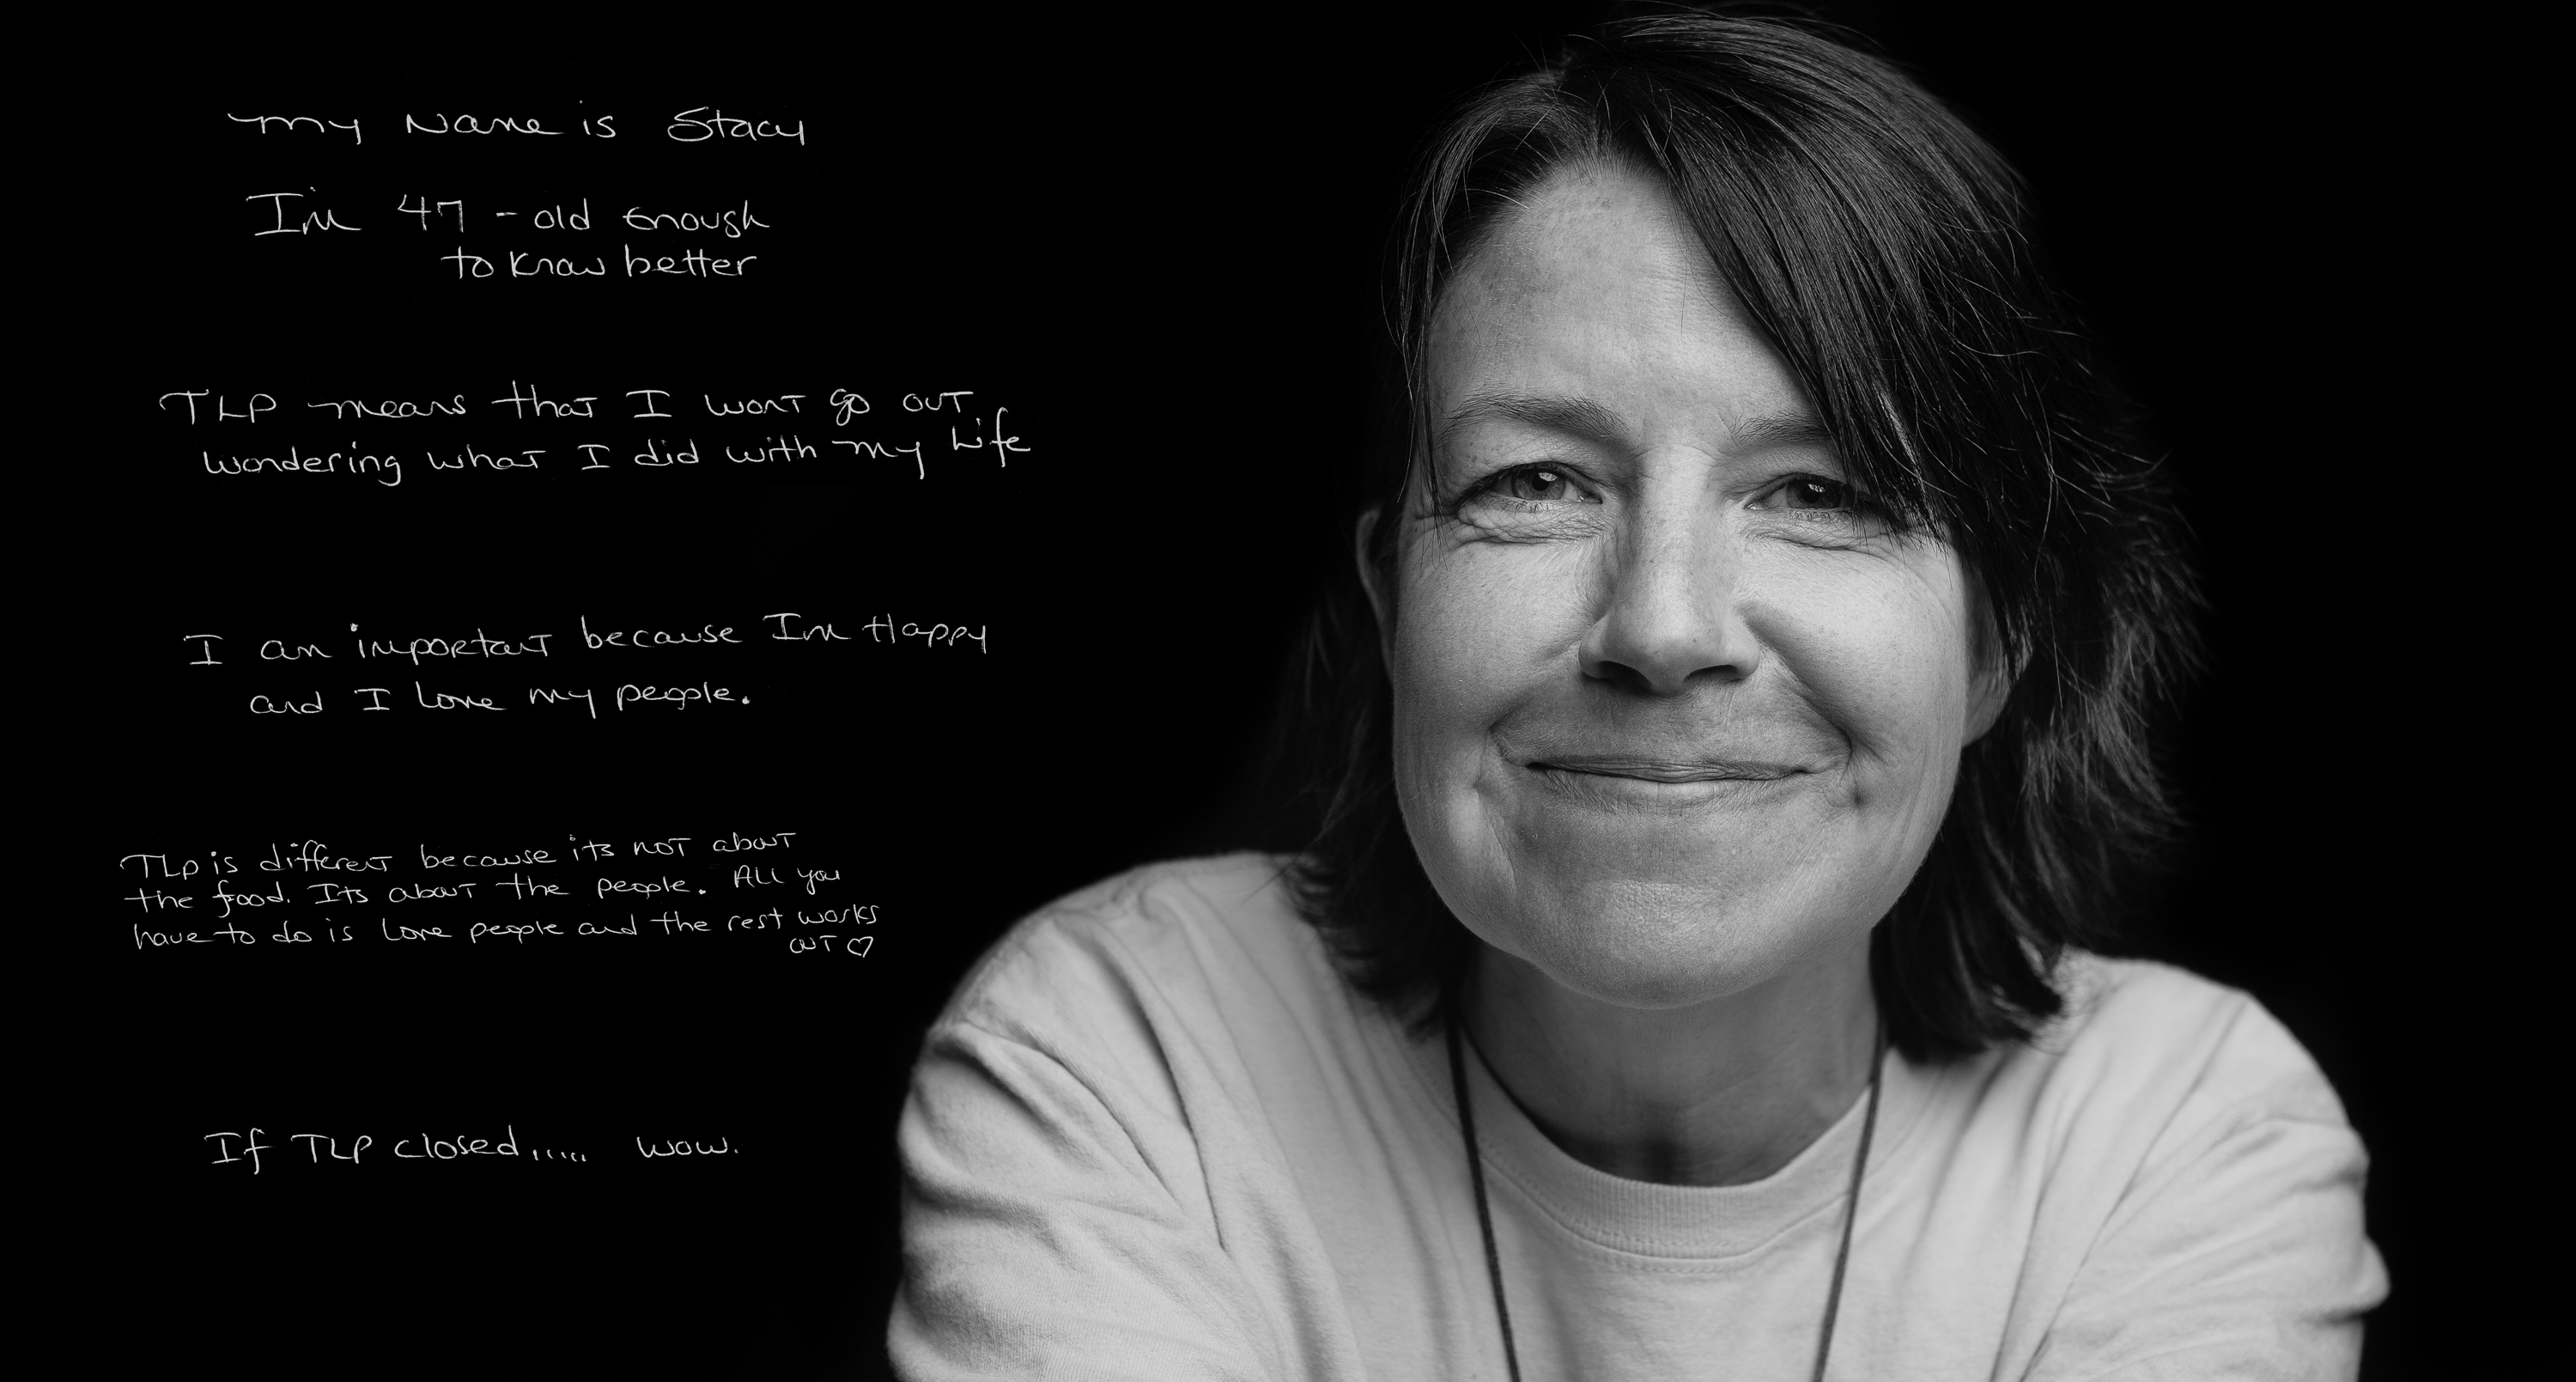 my Name is Stacy
I'm 47 - old enough
to know better
TLP means that I wont go out
wondering what I did with my Life
I am important because Im Happy
and I love my people.
TLP is different because its not about
the food. Its about the people. All you
have to do is love people and the rest works
out ♡
If TLP closed..... wow.